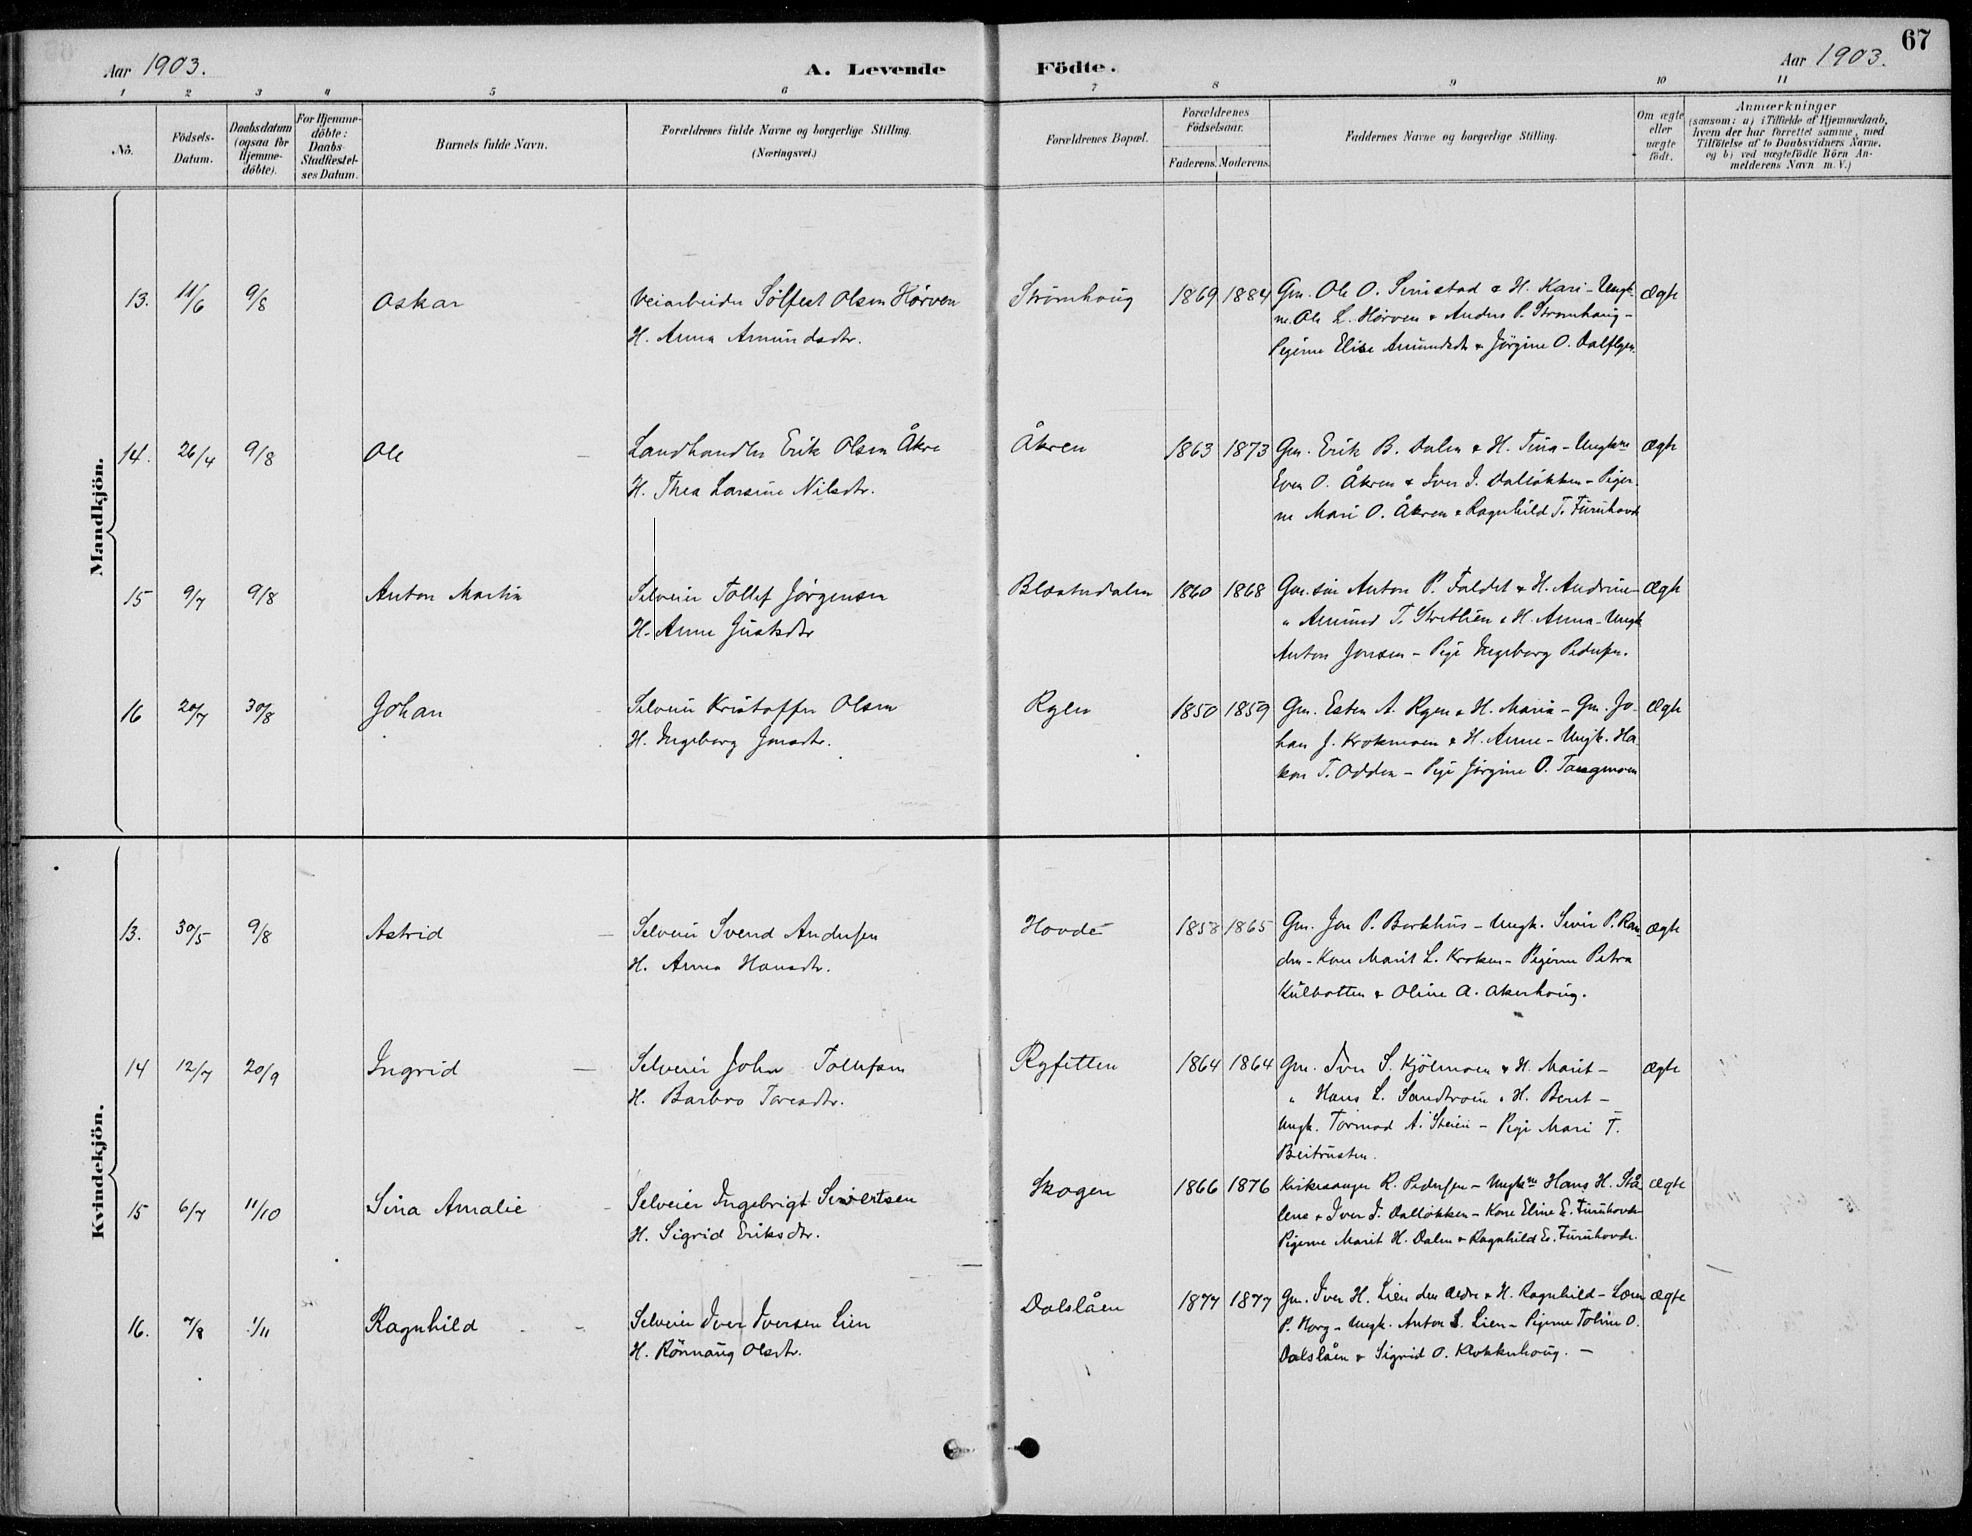 67
Aar 1903.
A. Levende Födte.
Aar 1903.
1 2 3 4 5 6 7 8 9 10 11
No.
Födsels-Datum.
Daabsdatum (ogsaa for Hjemme-döbte).
For Hjemme-döbte: Daabs-Stadfæstel-ses Datum.
Barnets fulde Navn.
Forældrenes fulde Navne og borgerlige Stilling. (Næringsvei.)
Forældrenes Bopæl.
Forældrenes Födselsaar.
Faderens. Moderens.
Faddernes Navne og borgerlige Stilling.
Om ægte eller uægte födt.
Anmærkninger (saasom: a) i Tilfælde af Hjemmedaab, hvem der har forrettet samme, med Tilföielse af to Daabsvidners Navne, og b) ved uægtefödte Börn An-melderens Navn m.V.)
Mandkjön.
13. 11/6 9/8 Oskar
Veiarbeider Sölfest Olsen Hörven
H. Anna Amundsdtr.
Strömhoug 1869 1884
Gm. Ole O. Simstad & H. Kari - Ungk-
ne. Ole L. Hörven & Anders P. Stromhaug -
Pigerne Elise Amundsdtr & Jörgine O.
ægte
14. 26/4 9/8 Ole
Landhandler Erik Olsen Åkre
H. Thea Larsine Nilsdtr.
Åkren 1863 1873
Gm. Erik B. Dalen & H. Tina - Ungkne
Even O. Åkren & Iver J. Dalløkken - Piger-
ne Mari O. Åkren & Ragnhild T. Furuhovde
ægte
15 9/7 9/8 Anton Martin
Selveier Tollef Jörgensen
H. Anne Justsdtr
1860 1868
Gm.sön Anton P. Faldet & H. Andrine -
" Amund T. & H. Anna - Ungk
Anton Jonsen - Pige Ingeborg Pedersen.
ægte
16 20/7 30/8 Johan
Selveier Kristoffer Olsen
H. Ingeborg Jonsdtr.
Ryen 1850 1859
Gm. Esten A. Ryen & H. Maria - Gm. Jo-
han J. Krokmoen & H. Anne - Ungk. Ha-
kon T. Odden - Pige Jörgine O. Tangmoen
ægte
Kvindekjön.
13. 30/5 9/8 Astrid
Selveier Svend Andersen
H. Anna Hansdtr.
Hovde 1858 1865
Gm. Jon P. Barkhus - Ungk. Siver P. Ran-
den - Kone Marit L. Kroken - Pigerne Petra
Kulbotten & Oline A. Akerhoug.
ægte
14 12/7 20/9 Ingrid
Selveier John Tollefsen
H. Barbro Toresdtr.
Ryfetten 1864 1864
Gm. Iver S. Kjölmoen & H. Marit -
" Hans L. Sandtröen & H. Berit -
Ungk. Tormod A. Steien - Pige Mari T.
Beitrusten.
ægte
15 6/7 11/10 Sina Amalie
Selveier Ingebrigt Sivertsen
H. Sigrid Eriksdtr.
Skogen 1866 1876
Kirkesanger R. Pedersen - Ungkne Hans H. Stå-
lene & Iver J. Dalløkken - Kone Eline E. Furuhovde
Pigerne Marit H. Dalen & Ragnhild E. Furuhovde.
ægte
16. 7/8 1/11 Ragnhild
Selveier Iver Iversen Lien
H. Rönnaug Olsdtr.
Dalslåen 1877 1877
Gm. Iver H. Lien den ældre & H. Ragnhild - Lærer
P. Borg - Ungk. Anton L. Lien - Pigerne Toline O.
Dalslåen & Sigrid O. Klokkerhoug. -
ægte